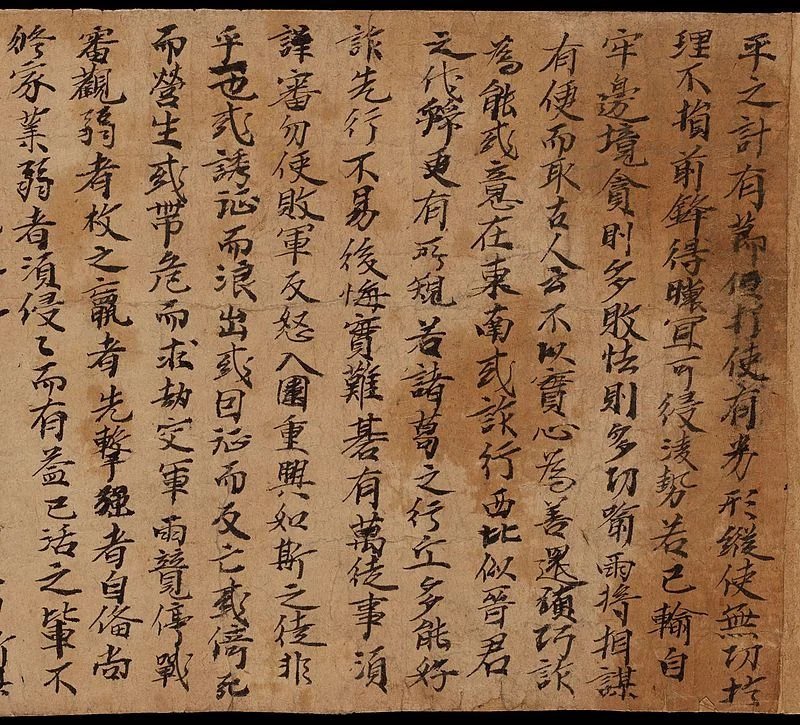 平之計有節但打使有劵形縱使無功於
理不損前鋒得壤冝可侵淩勢若已輸自
牢邊境貪則多敗怯則多功喻兩將相謀
有便而取古人云不以實心為善還須巧詐
為能或意在東南或詐行西北似晉君
之伐虢更有所規若諸葛之行丘多能好
詐先行不易後悔實難碁有萬徒事須
詳審勿使敗軍反怒入圍重興如斯之徒非
乎一也或誘征而浪出或因征而反亡或倚死
而營生或帶危而求劫交軍兩競停戰
審觀弱者枚之羸者先擊強者自俻尚
修家業弱者須侵侵而有益已活之軰不